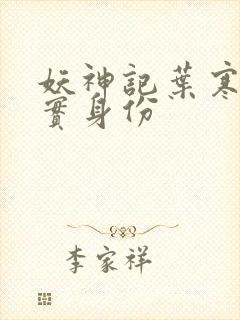 妖神記葉寒
實身份
李家祥